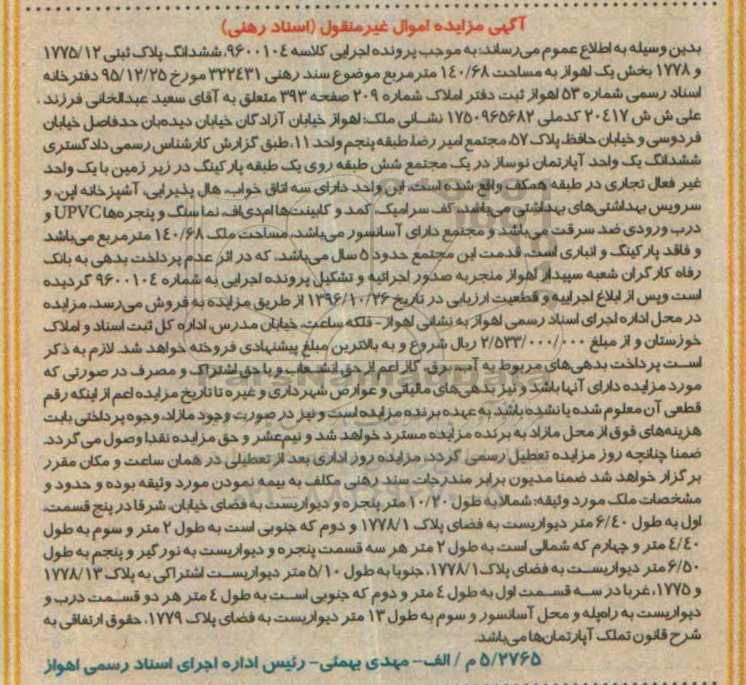 آگهی مزایده اموال غیرمنقول (اسناد رهنی)
بدین وسیله به اطلاع عموم می‌رساند: به موجب پرونده اجرایی کلاسه ۹۶۰۰۱۰۴، ششدانگ پلاک ثبتی ۱۷۷۵/۱۲
و ۱۷۷۸ بخش یک اهواز به مساحت ۱۴۰/۶۸ مترمربع موضوع سند رهنی ۳۲۲۴۳۱ مورخ ۹۵/۱۲/۲۵ دفترخانه
اسناد رسمی شماره ۵۳ اهواز ثبت دفتر املاک شماره ۲۰۹ صفحه ۳۹۳ متعلق به آقای سعید عبدالخانی فرزند
علی ش ش ۲۰۴۱۷ کدملی ۱۷۵۰۹۶۵۶۸۲ نشانی ملک: اهواز خیابان آزادگان خیابان دیده‌بان حدفاصل خیابان
فردوسی و خیابان حافظ، پلاک ۵۷، مجتمع امیر رضا، طبقه پنجم واحد ۱۱، طبق گزارش کارشناس رسمی دادگستری
ششدانگ یک واحد آپارتمان نوساز در یک مجتمع شش طبقه روی یک طبقه پارکینگ در زیر زمین با یک واحد
غیر فعال تجاری در طبقه همکف واقع شده است، این واحد دارای سه اتاق خواب، هال پذیرایی، آشپزخانه اپن، و
سرویس بهداشتی‌های بهداشتی می‌باشد، کف سرامیک، کمد و کابینت‌ها ام‌دی‌اف، نما سنگ و پنجره‌ها UPVC و
درب ورودی ضد سرقت می‌باشد و مجتمع دارای آسانسور می‌باشد، مساحت ملک ۱۴۰/۶۸ مترمربع می‌باشد
و فاقد پارکینگ و انباری است، قدمت این مجتمع حدود ۵ سال می‌باشد، که در اثر عدم پرداخت بدهی به بانک
رفاه کارگران شعبه سپیدار اهواز منجر به صدور اجرائیه و تشکیل پرونده اجرایی به شماره ۹۶۰۰۱۰۴ گردیده
است و پس از ابلاغ اجراییه و قطعیت ارزیابی در تاریخ ۱۳۹۶/۱۰/۲۶ از طریق مزایده به فروش می‌رسد، مزایده
در محل اداره اجرای اسناد رسمی اهواز به نشانی اهواز - فلکه ساعت، خیابان مدرس، اداره کل ثبت اسناد و املاک
خوزستان و از مبلغ ۲/۵۳۳/۰۰۰/۰۰۰ ریال شروع و به بالاترین مبلغ پیشنهادی فروخته خواهد شد. لازم به ذکر
است پرداخت بدهی‌های مربوط به آب، برق، گاز اعم از حق انشعاب و یا حق اشتراک و مصرف در صورتی که
مورد مزایده دارای آنها باشد و نیز بدهی‌های مالیاتی و عوارض شهرداری و غیره تا تاریخ مزایده اعم از اینکه رقم
قطعی آن معلوم شده یا نشده باشد به عهده برنده مزایده است و نیز در صورت وجود مازاد، وجوه پرداختی بابت
هزینه‌های فوق از محل مازاد به برنده مزایده مسترد خواهد شد و نیم‌عشر و حق مزایده نقدا وصول می‌گردد.
ضمنا چنانچه روز مزایده تعطیل رسمی گردد، مزایده روز اداری بعد از تعطیلی در همان ساعت و مکان مقرر
برگزار خواهد شد ضمنا مدیون برابر مندرجات سند رهنی مکلف به بیمه نمودن مورد وثیقه بوده و حدود و
مشخصات ملک مورد وثیقه: شمالا به طول ۱۰/۲۰ متر پنجره و دیواریست به فضای خیابان، شرقا در پنج قسمت،
اول به طول ۶/۴۰ متر دیواریست به فضای پلاک ۱۷۷۸/۱ و دوم که جنوبی است به طول ۲ متر و سوم به طول
۴/۴۰ متر و چهارم که شمالی است به طول ۲ متر هر سه قسمت پنجره و دیواریست به نورگیر و پنجم به طول
۶/۵۰ متر دیواریست به فضای پلاک ۱۷۷۸/۱، جنوبا به طول ۵/۱۰ متر دیواریست اشتراکی به پلاک ۱۷۷۸/۱۳
و ۱۷۷۵، غربا در سه قسمت اول به طول ۴ متر و دوم که جنوبی است به طول ۴ متر هر دو قسمت درب و
دیواریست به راه‌پله و محل آسانسور و سوم به طول ۱۳ متر دیواریست به فضای پلاک ۱۷۷۹، حقوق ارتفاقی به
شرح قانون تملک آپارتمان‌ها می‌باشد.
۵/۲۷۶۵ م / الف - مهدی بهمئی - رئیس اداره اجرای اسناد رسمی اهواز